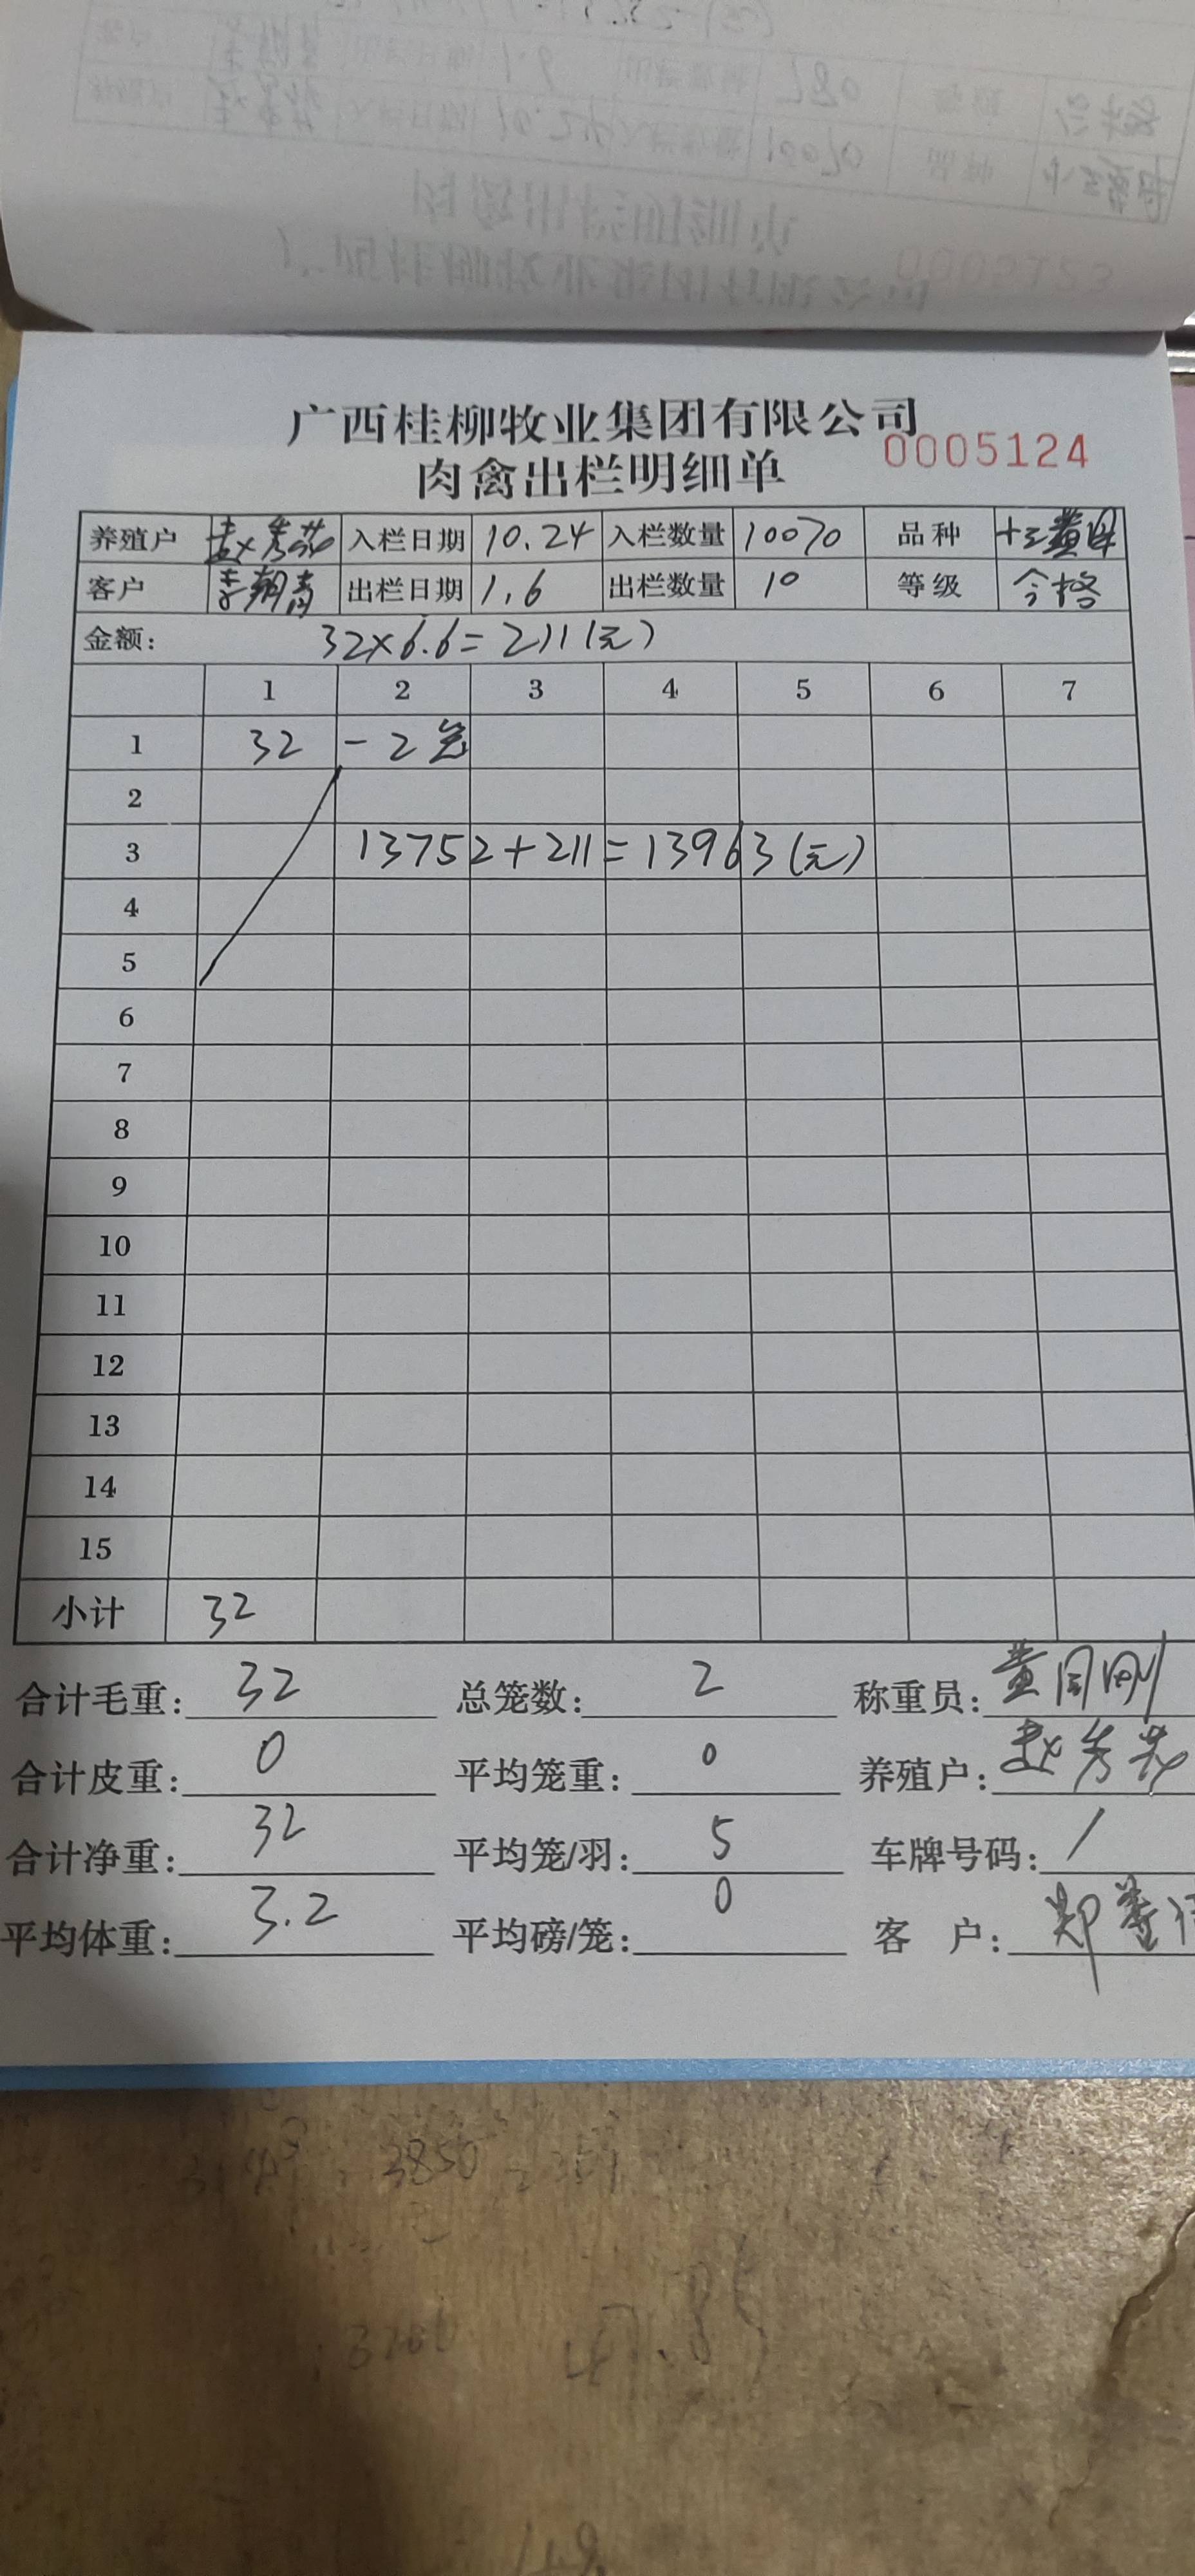 广西桂柳牧业集团有限公司
0005124
肉禽出栏明细单
养殖户 赵秀 入栏日期 10.24 入栏数量 10070 品种 土三黄
客户 李朝 出栏日期 1.6 出栏数量 10 等级 合格
金额: 32×6.6=211(元)
1 2 3 4 5 6 7
1 32 -2
2
3 13752+211=13963(元)
4
5
6
7
8
9
10
11
12
13
14
15
小计 32
合计毛重: 32 总笼数: 2 称重员: 黄同刚
合计皮重: 0 平均笼重: 0 养殖户: 赵秀
合计净重: 32 平均笼/羽: 5 车牌号码: /
平均体重: 3.2 平均磅/笼: 0 客户: 郑
3850